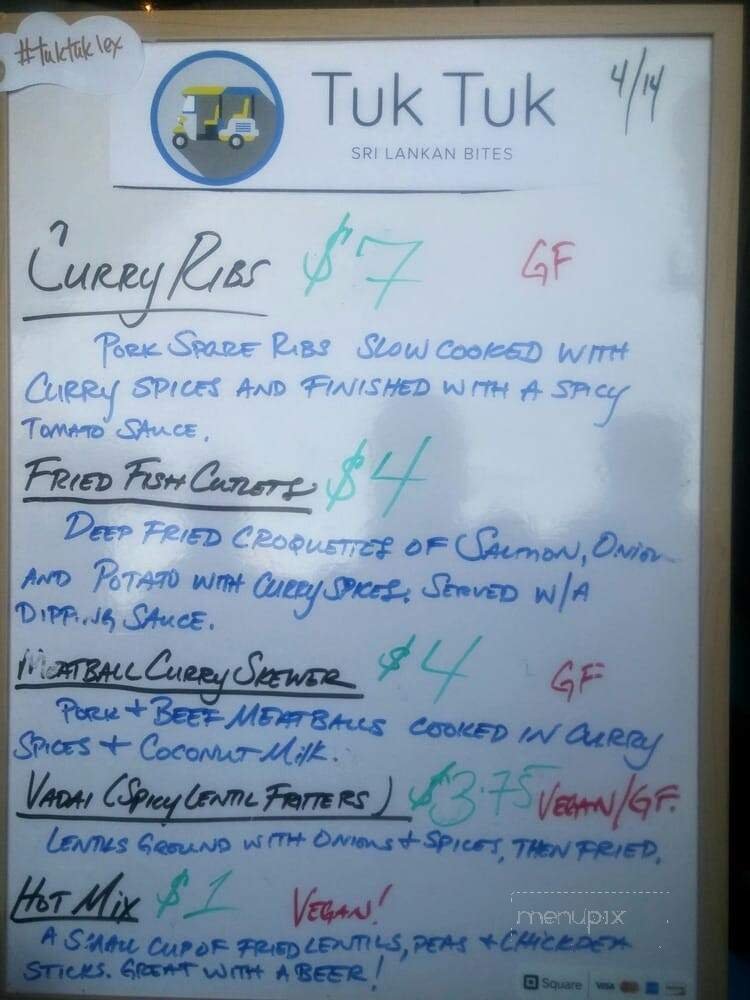 #tuktuklex
Tuk Tuk
4/14
SRI LANKAN BITES
CURRY RIBS $7 GF
PORK SPARE RIBS SLOW COOKED WITH
CURRY SPICES AND FINISHED WITH A SPICY
TOMATO SAUCE.
FRIED FISH CUTLETS $4
DEEP FRIED CROQUETTES OF SALMON, ONION
AND POTATO WITH CURRY SPICES. SERVED W/A
DIPPING SAUCE.
MEATBALL CURRY SKEWER $4 GF
PORK + BEEF MEATBALLS COOKED IN CURRY
SPICES + COCONUT MILK.
VADAI (SPICY LENTIL FRITTERS) $3.75 VEGAN/GF.
LENTILS GROUND WITH ONIONS + SPICES, THEN FRIED.
HOT MIX $1 VEGAN!
A SMALL CUP OF FRIED LENTILS, PEAS + CHICKPEA
STICKS. GREAT WITH A BEER!
menupix
Square VISA